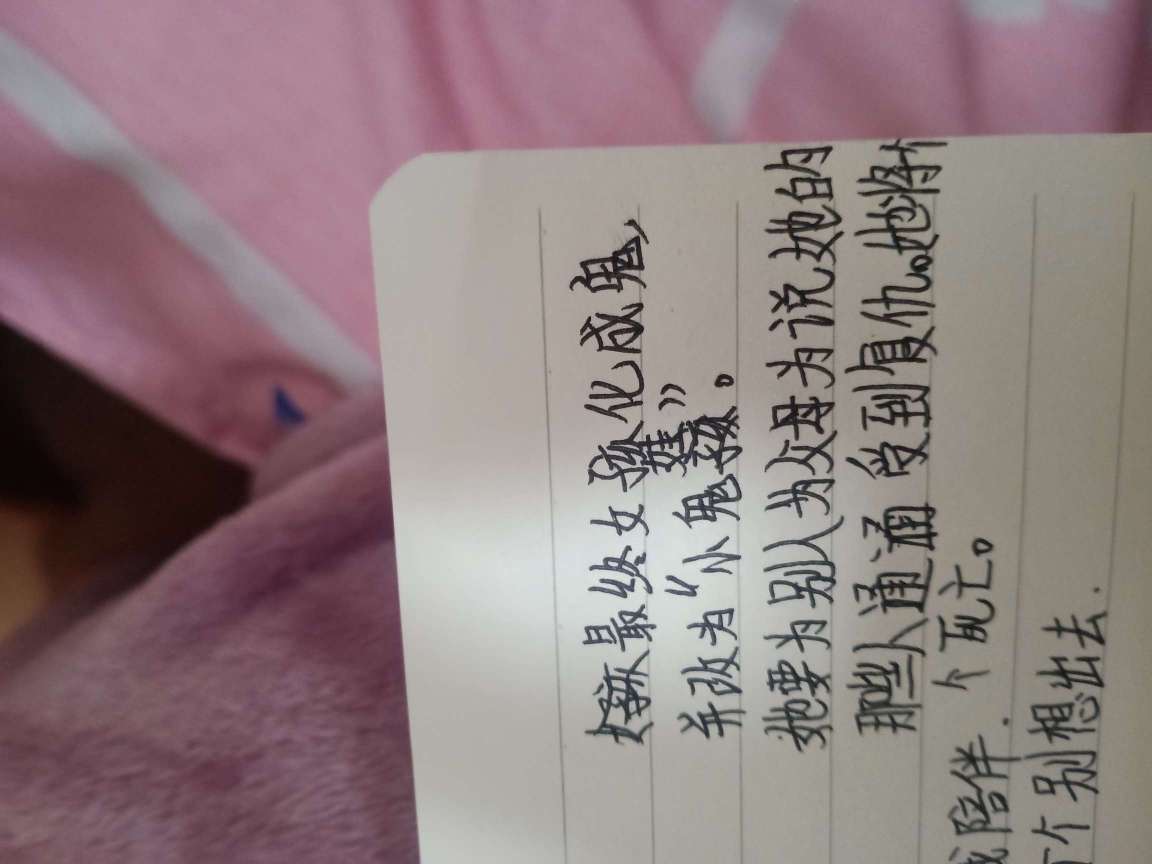 最终女孩化成鬼,
并改为“小鬼孩”。
她要为别人为父母为说她的
那些人通通受到复仇。她将
陪伴. 个死亡。
个别想出去.